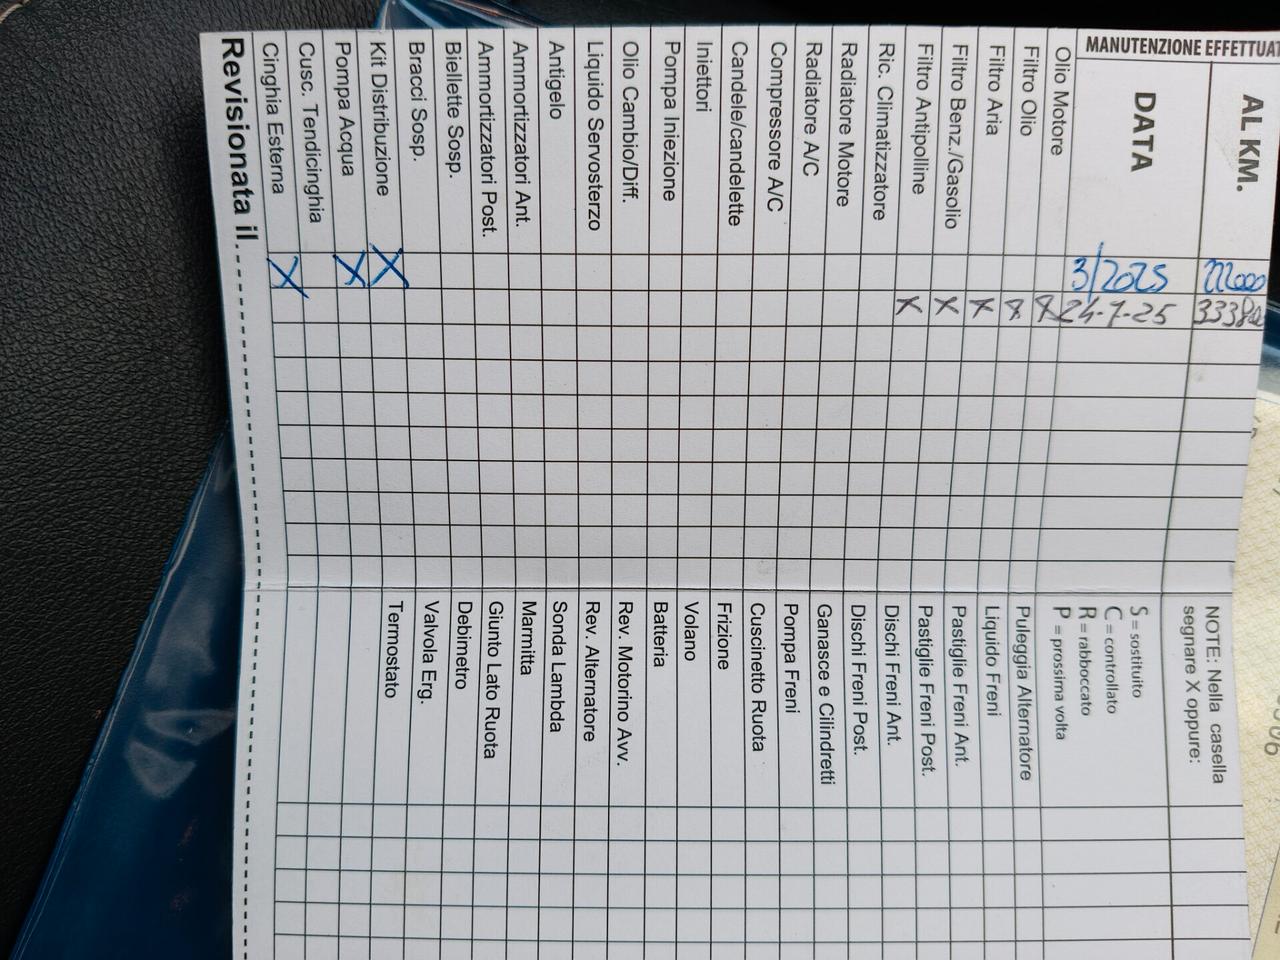 MANUTENZIONE EFFETTUAT
AL KM. 222000
DATA 3/2025 24-7-25
Olio Motore X
Filtro Olio X
Filtro Aria X
Filtro Benz./Gasolio X
Filtro Antipolline X
Ric. Climatizzatore
Radiatore Motore
Radiatore A/C
Compressore A/C
Candele/candelette
Iniettori
Pompa Iniezione
Olio Cambio/Diff.
Liquido Servosterzo
Antigelo
Ammortizzatori Ant.
Ammortizzatori Post.
Biellette Sosp.
Bracci Sosp.
Kit Distribuzione X
Pompa Acqua X
Cusc. Tendicinghia
Cinghia Esterna X
Revisionata il
NOTE: Nella casella
segnare X oppure:
S = sostituito
C = controllato
R = rabboccato
P = prossima volta
Puleggia Alternatore
Liquido Freni
Pastiglie Freni Ant.
Pastiglie Freni Post.
Dischi Freni Ant.
Dischi Freni Post.
Ganasce e Cilindretti
Pompa Freni
Cuscinetto Ruota
Frizione
Volano
Batteria
Rev. Motorino Avv.
Rev. Alternatore
Sonda Lambda
Marmitta
Giunto Lato Ruota
Debimetro
Valvola Erg.
Termostato